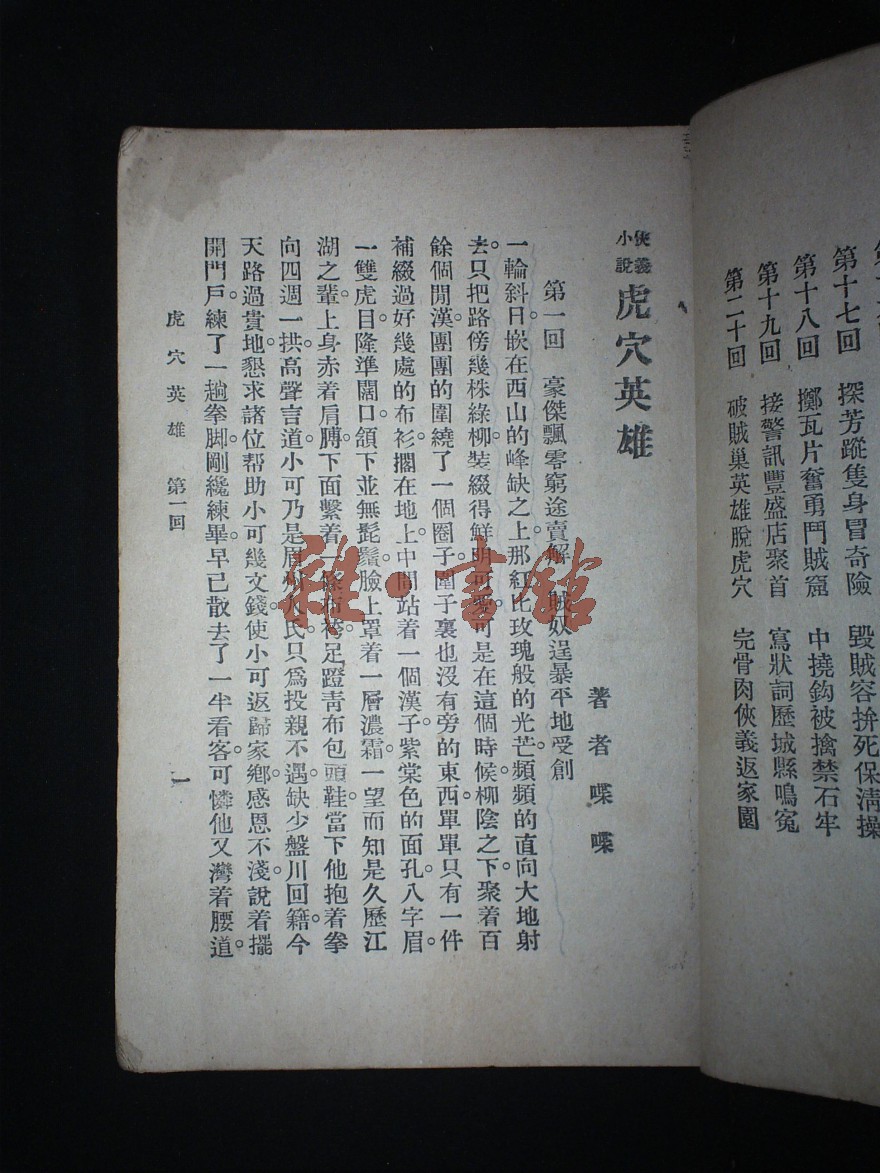 第十七回　探芳蹤隻身冒奇險　毀賊容拚死保清操
第十八回　擲瓦片奮勇鬥賊窟　中撓鈎被擒禁石牢
第十九回　接警訊豐盛店聚首　寫狀詞歷城縣鳴寃
第二十回　破賊巢英雄脫虎穴　完骨肉俠義返家園
俠義小說　虎穴英雄
著者喋喋
第一回　豪傑飄零窮途賣解　賊奴逞暴平地受創
一輪斜日。嵌在西山的峰缺之上。那紅比玫瑰般的光芒。頻頻的直向大地射
去。只把路傍幾株綠柳。裝綴得鮮明可愛。可是在這個時候。柳陰之下。聚着百
餘個閒漢。團團的圍繞了一個圈子。圈子裏也沒有旁的東西。單單只有一件
補綴過好幾處的布衫。擱在地上。中間站着一個漢子。紫棠色的面孔。八字眉。
一雙虎目。隆準闊口。頷下並無髭鬚。臉上罩着一層濃霜。一望而知是久歷江
湖之輩。上身赤着肩膊。下面繫着一條布袴。足蹬青布包頭鞋。當下他抱着拳
向四週一拱。高聲言道。小可乃是眉州人氏。只爲投親不遇。缺少盤川回籍。今
天路過貴地。懇求諸位帮助小可幾文錢。使小可返歸家鄉。感恩不淺。說着。擺
開門戶。練了一趟拳脚。剛纔練畢。早已散去了一半看客。可憐他又灣着腰道。
虎穴英雄　第一回
一
雜·書館